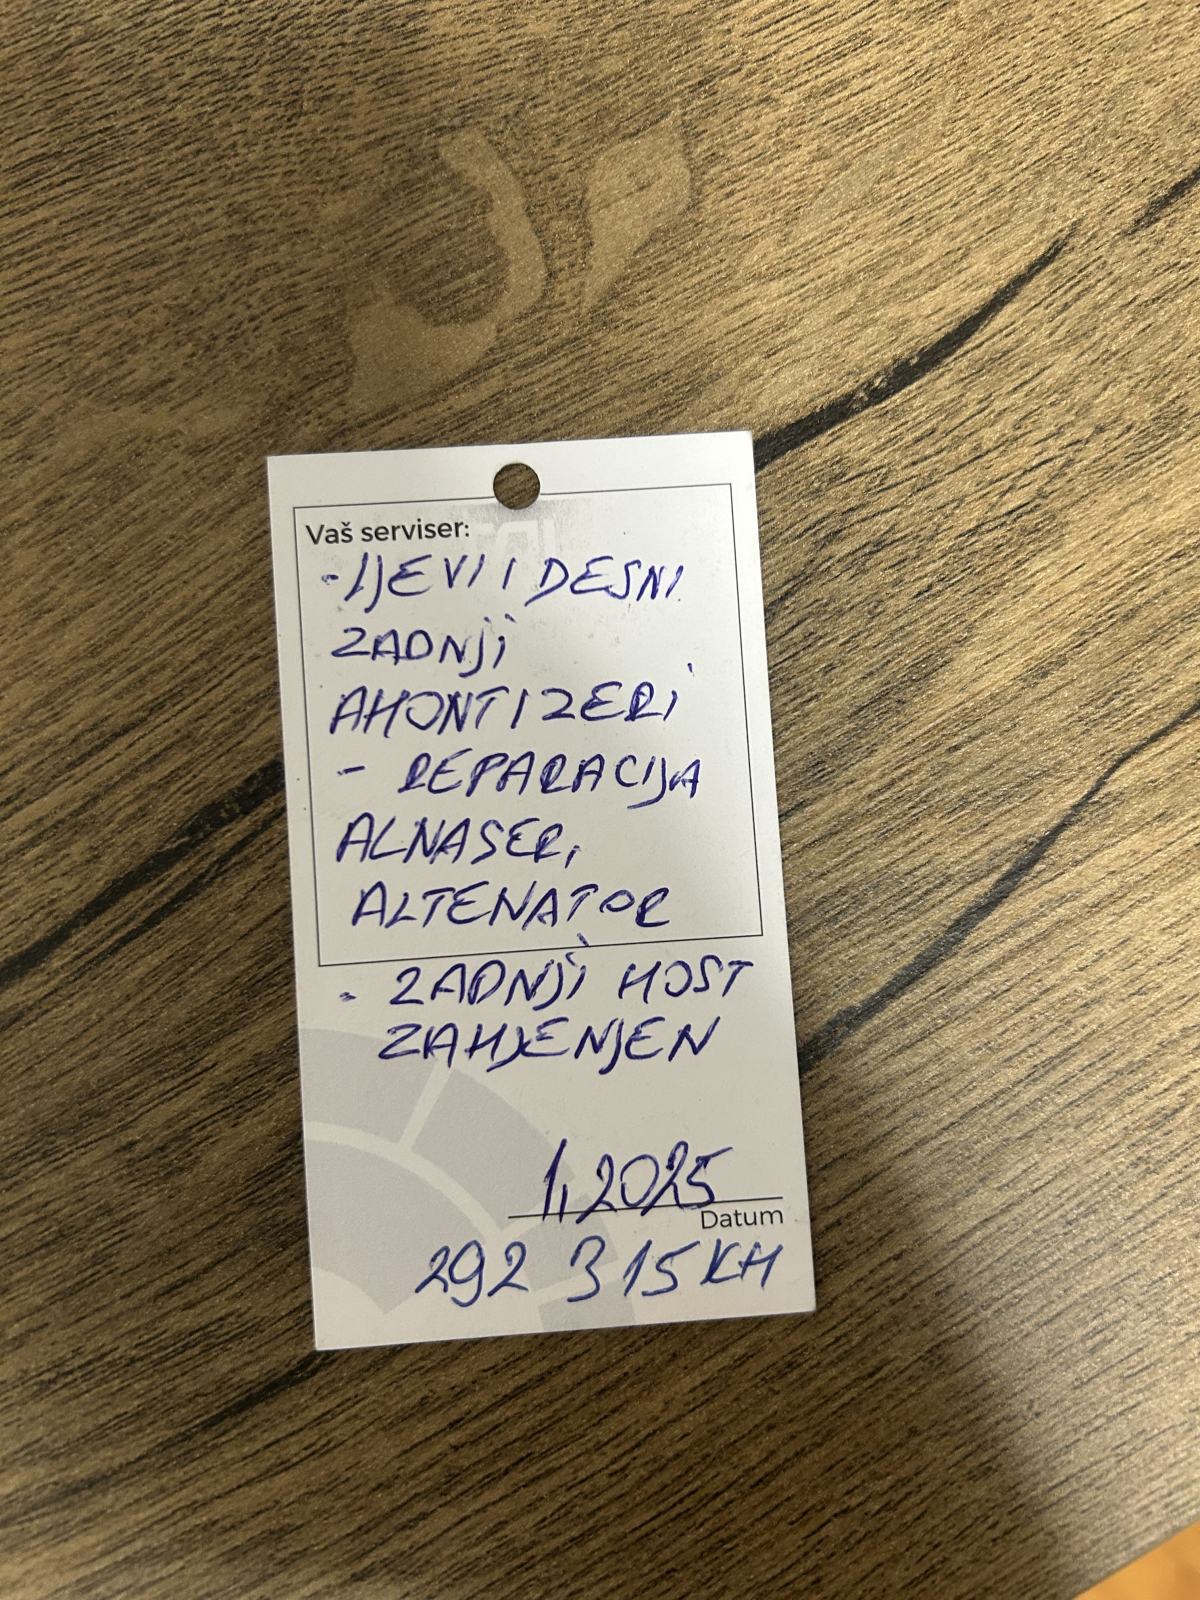 Vaš serviser:
- LJEVI I DESNI
ZADNJI
AMONTIZERI
- REPARACIJA
ALNASER,
ALTENATOR
- ZADNJI MOST
ZAMJENJEN
1,2025
Datum
292 315 KM